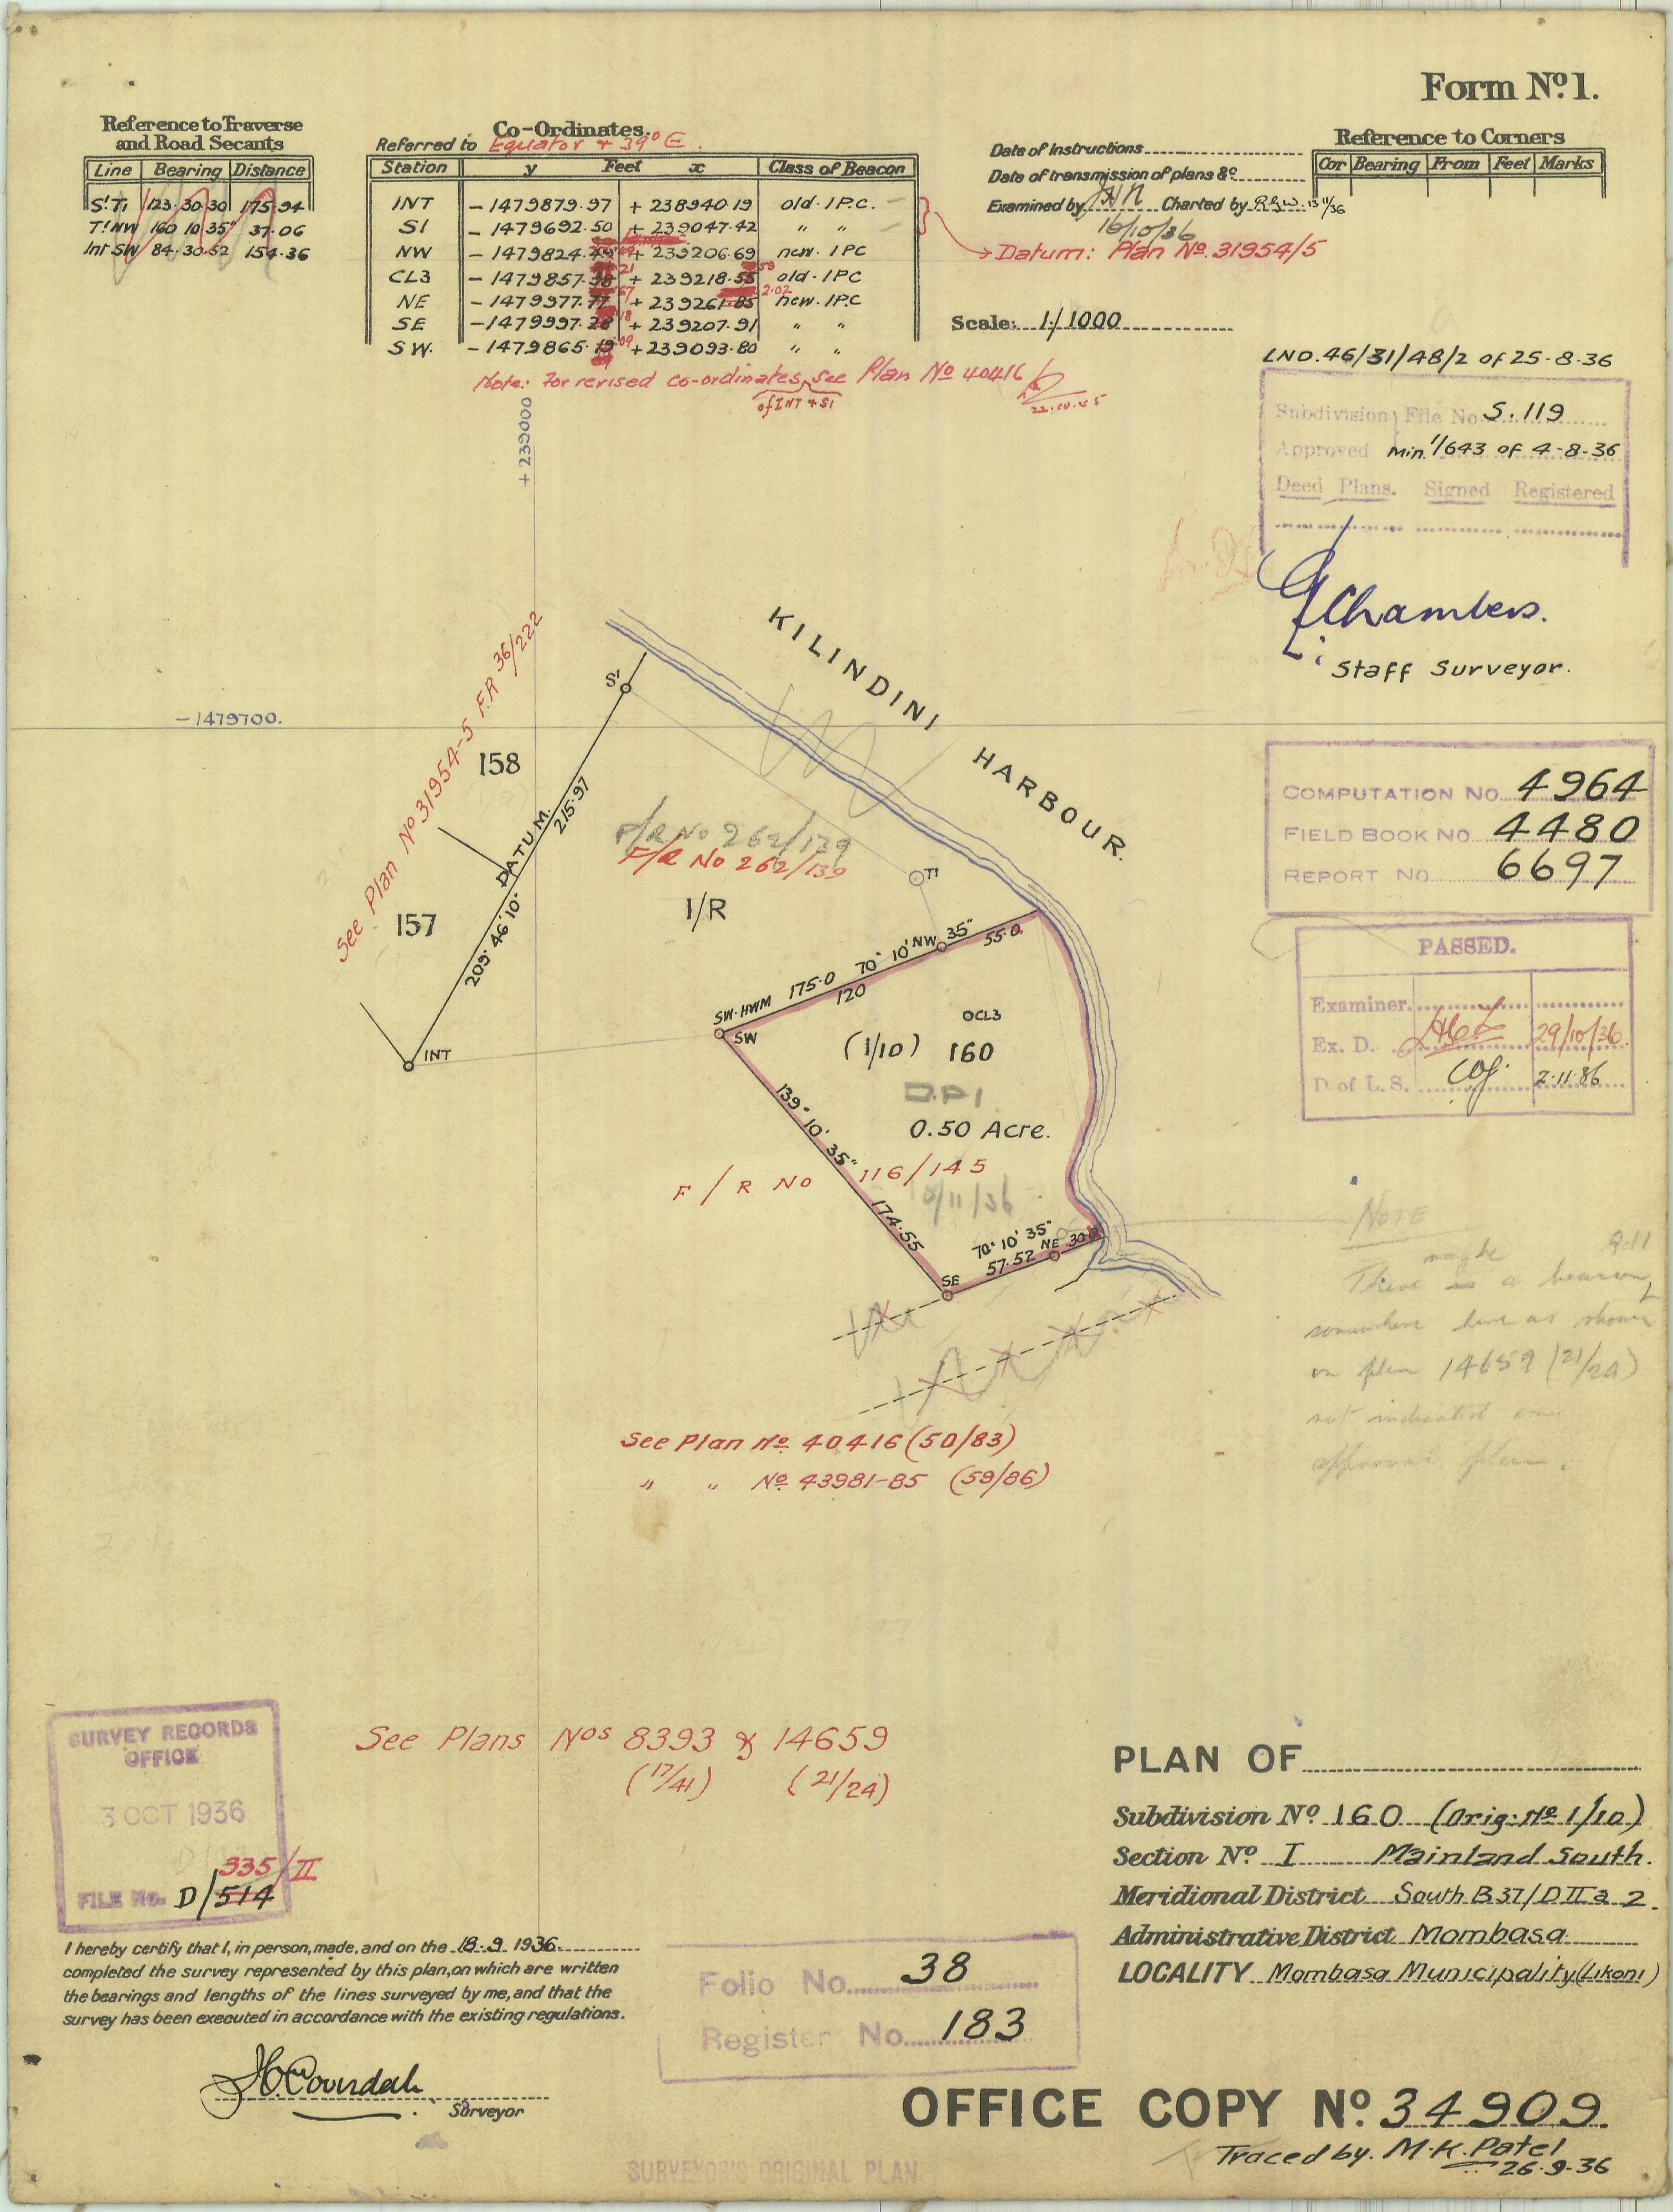 Form Nº1.
Reference to Traverse
and Road Secants
Line Bearing Distance
S'T1 123·30·30 175·94
T'NW 160 10 35" 37·06
Int SW 84·30·52 154·36
Co-Ordinates.
Referred to Equator & 39° E.
Station y Feet x Class of Beacon
INT -1479879.97 + 238940.19 old·IPC.
S1 -1479692.50 + 239047.42 " "
NW -1479824. + 239206.69 new·IPC
CL3 -1479857. + 239218.55 old·IPC
NE -1479977. + 239261.85 2.02 new·IPC
SE -1479997. 18 + 239207.91 " "
SW. -1479865. 09 + 239093.80 " "
Note: For revised co-ordinates, see Plan Nº 40416
of INT & S1
22.10.45
Date of Instructions
Date of transmission of plans &c
Examined by Charted by
16/10/36
Datum: Plan Nº 31954/5
Scale: 1/1000
Reference to Corners
Cor Bearing From Feet Marks
LND.46/31/48/2 of 25-8-36
Subdivision File No S.119
Approved Min.11/643 of 4-8-36
Deed Plans. Signed Registered
Chambers.
Staff Surveyor.
+ 239000
-1479700.
KILINDINI HARBOUR.
S'
See Plan Nº 31954-5 F.R 36/222
158
DATUM. 215·97
209° 46' 10"
157
INT
F/R No 262/139
F/R No 262/139
T'
1/R
SW·HWM 175·0 70° 10' 35"
NW
120
55·0
SW
CL3
(1/10) 160
D.P1
0.50 Acre.
139° 10' 35"
174·55
F/R NO 116/145
/11/36
70° 10' 35"
57·52 NE 30·0
SE
COMPUTATION NO 4964
FIELD BOOK NO. 4480
REPORT NO 6697
PASSED.
Examiner.
Ex. D. 29/10/36.
D of L.S. 2·11·36
NOTE
maybe
There is a beacon
somewhere here as shown
on plan 14659 (21/24)
not indicated on
approval plan.
See Plan Nº 40416 (50/83)
" " Nº 43981-85 (59/86)
See Plans Nos 8393 & 14659
(17/41) (21/24)
SURVEY RECORDS
OFFICE
3 OCT 1936
335/II
FILE No. D/514
I hereby certify that I, in person, made, and on the 18.9.1936
completed the survey represented by this plan, on which are written
the bearings and lengths of the lines surveyed by me, and that the
survey has been executed in accordance with the existing regulations.
Surveyor
Folio No. 38
Register No. 183
PLAN OF
Subdivision Nº 160 (Orig: Nº 1/10)
Section Nº I Mainland South.
Meridional District South B 37/D II a 2.
Administrative District Mombasa
LOCALITY Mombasa Municipality (Likoni)
OFFICE COPY Nº 34909.
Traced by. M.K. Patel
26·9·36
SURVEYORS ORIGINAL PLAN